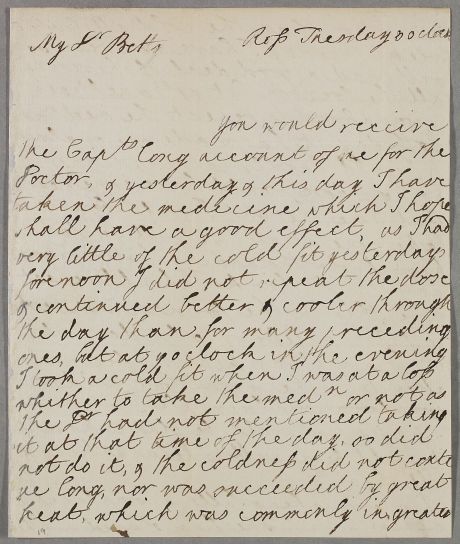 My Dr Betty Ross Tuesday 3 oclock
You would receive
the Capts long account of me for the
Doctor, & yesterday & this day I have
taken the medecine which I hope
shall have a good effect, as I had
very little of the cold fit yesterday
forenoon I did not repeat the dose
& continued better & cooler through
the day than for many preceeding
ones, but at 9 oclock in the evening
I took a cold fit when I was at a loss
whither to take the medn or not as
the Dr had not mentioned taking
it at that time of the day, so did
not do it, & the coldness did not conti
ue long, nor was succeeded by great
heat, which was commonly in greater